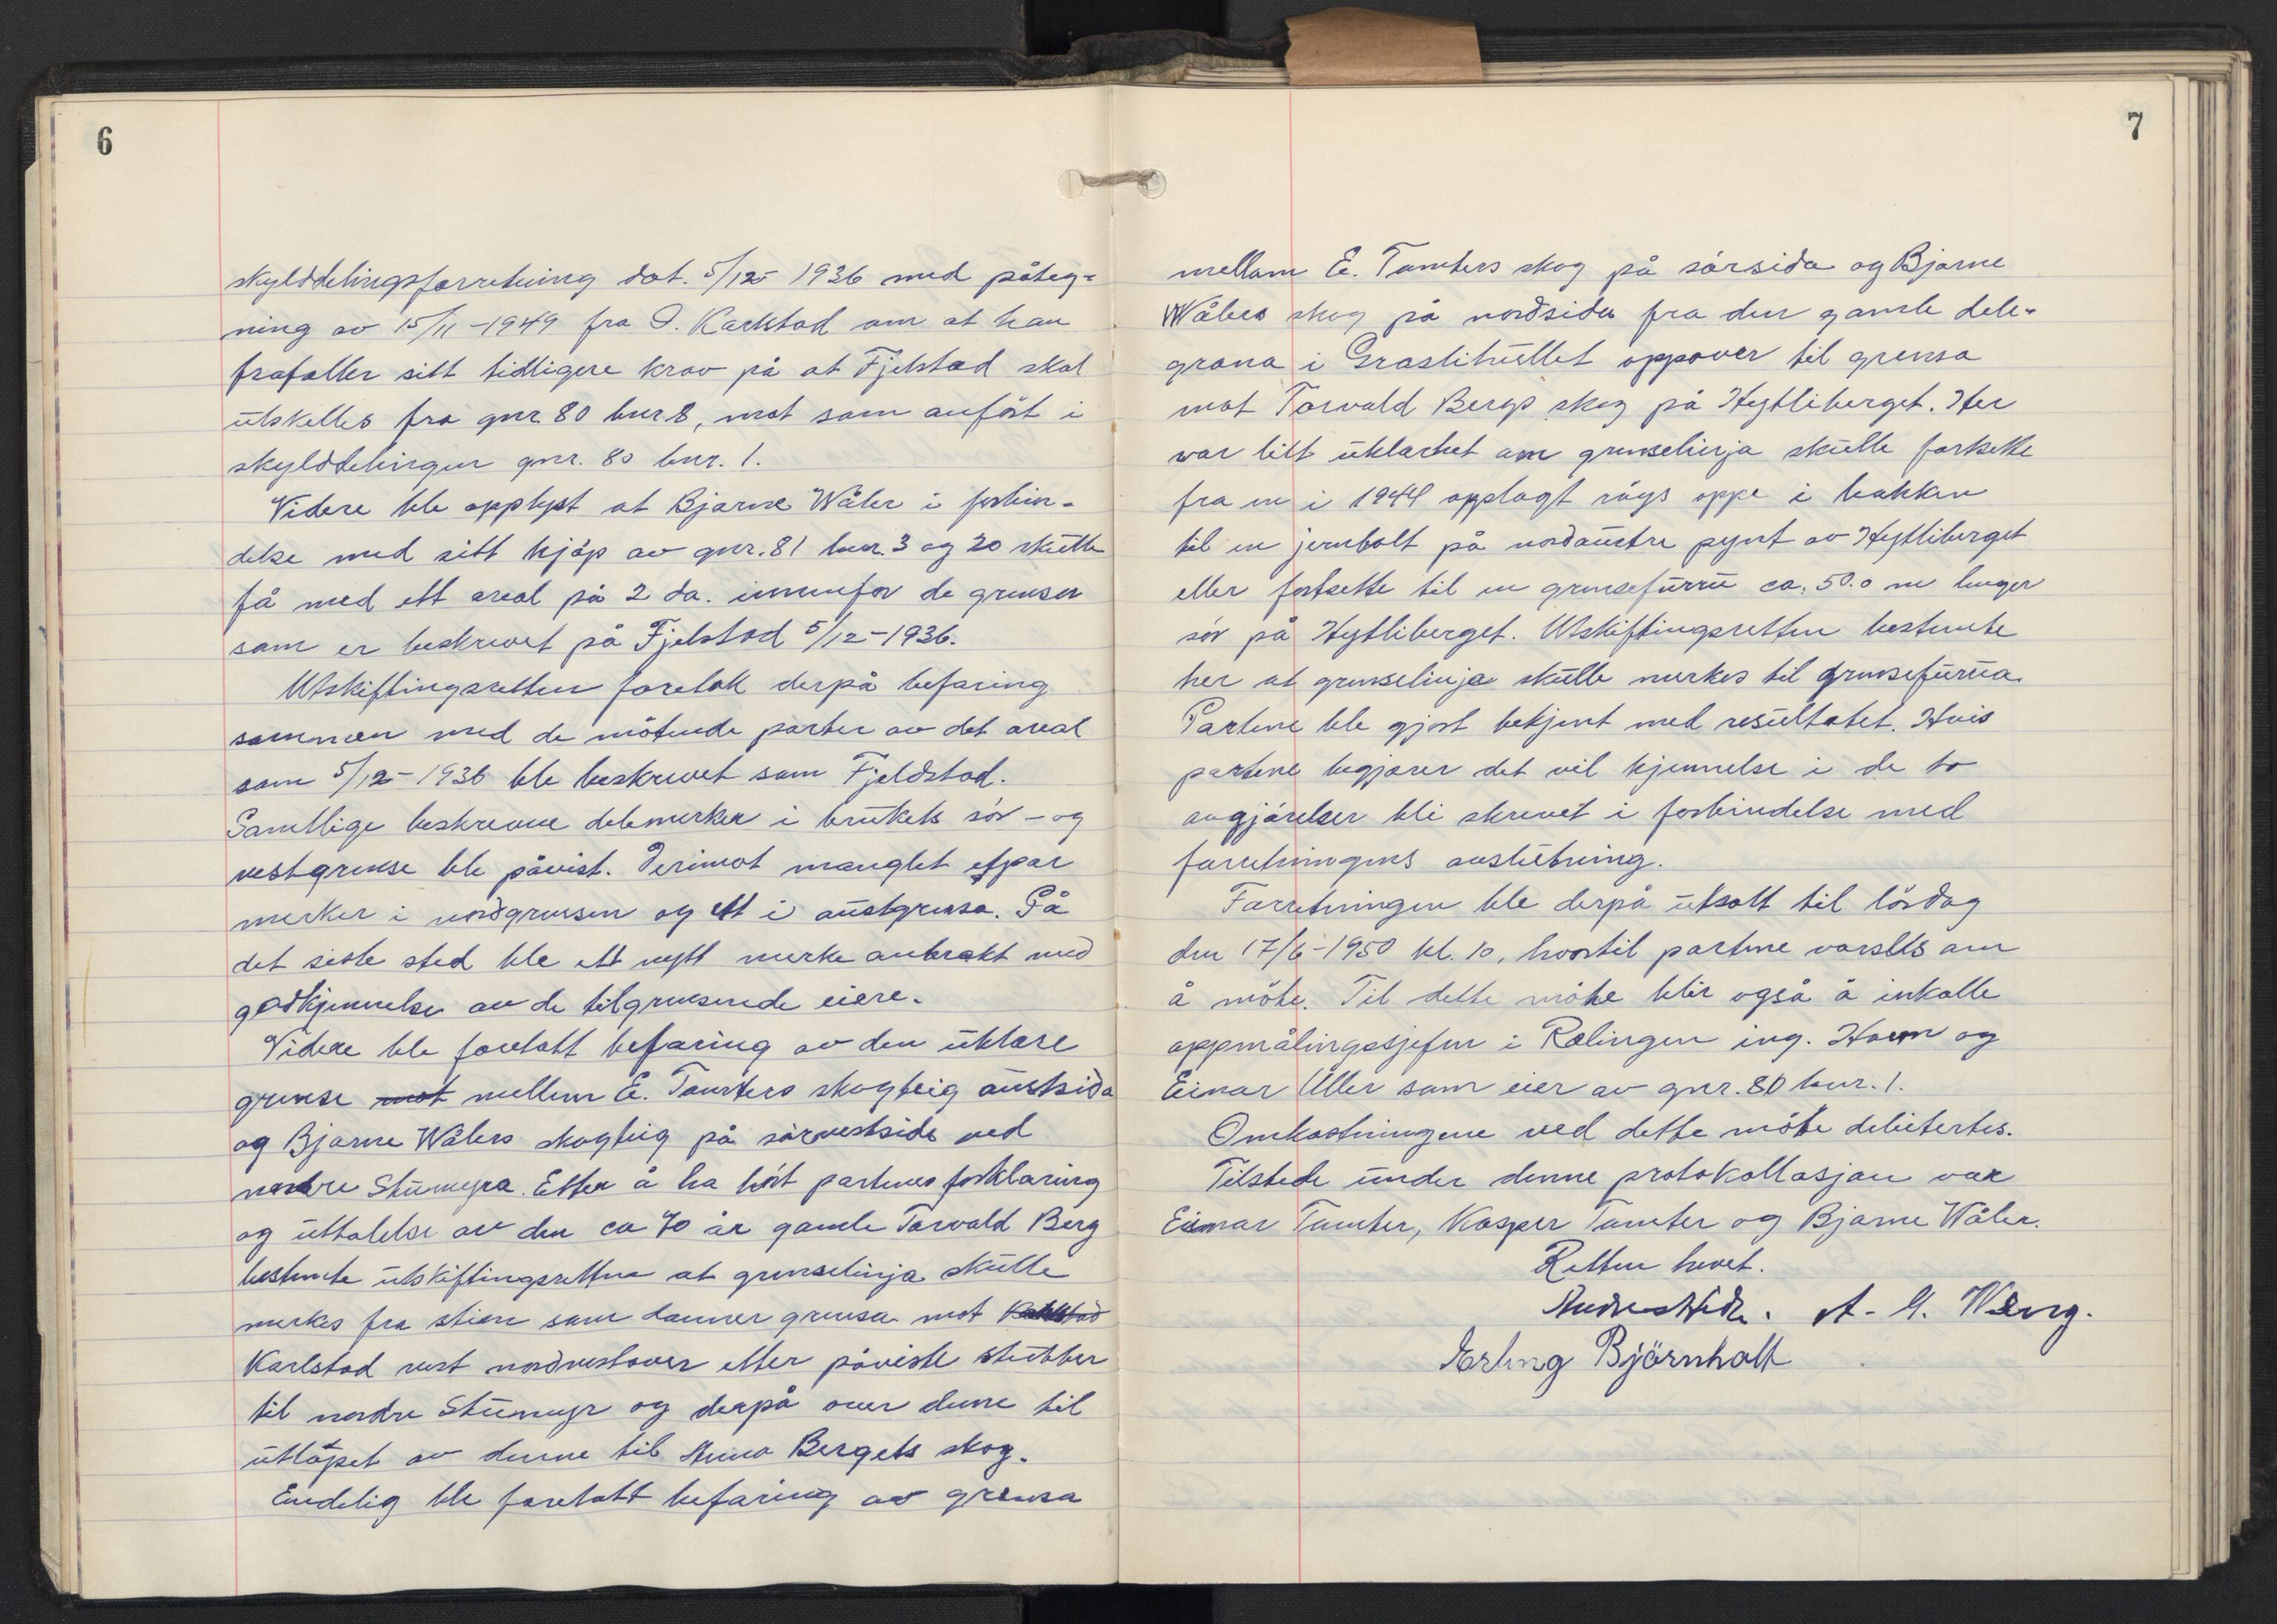 6
skylddelingsforretning dat. 5/12- 1936 med påteg-
ning av 15/11-1949 fra O. Karlstad om at han
frafaller sitt tidligere krav på at Fjelstad skal
utskilles fra gnr. 80 bnr 8, mot som anført i
skylddelingen gnr. 80 bnr. 1.
Videre ble opplyst at Bjarne Wåler i forbin-
delse med sitt kjøp av gnr. 81 bnr. 3 og 20 skulle
få med ett areal på 2 da. innenfor de grenser
som er beskrevet på Fjelstad 5/12-1936.
Utskiftingsretten foretok derpå befaring
sammen med de møtende parter av det areal
som 5/12-1936 ble beskrevet som Fjeldstad.
Samtlige beskrevne delemerker i brukets sør- og
vestgrense ble påvist. Derimot manglet et par
merker i nordgrensen og ett i austgrensa. På
det siste sted ble ett nytt merke anbrakt med
godkjennelse av de tilgrensende eiere.
Videre ble foretatt befaring av den uklare
grense mot mellem E. Tamters skogteig austsida
og Bjarne Wålers skogteig på sørvestside ved
nordre Stumyra. Etter å ha hørt partenes forklaring
og uttalelse av den ca 70 år gamle Torvald Berg
bestemte utskiftingsretten at grenselinja skulle
merkes fra stien som danner grensa mot Karlstad
Karlstad rett nordvestover etter påviste stubber
til nordre Stumyr og derpå over denne til
utløpet av denne til Anna Bergets skog.
Endelig ble foretatt befaring av grensa
7
mellom E. Tamters skog på sørsida og Bjarne
Wålers skog på nordsida fra den gamle dele-
grana i Graslihullet oppover til grensa
mot Torvald Bergs skog på Hytliberget. Her
var litt uklarhet om grenselinja skulle fortsette
fra en i 1944 opplagt røys oppe i bakken
til en jernbolt på nordaustre pynt av Hytliberget
eller fortsette til en grensefurru ca. 50.0 m lenger
sør på Hytliberget. Utskiftingsretten bestemte
her at grenselinja skulle merkes til grensefurua.
Partene ble gjort bekjent med resultatet. Hvis
partene begjærer det vil kjennelse i de to
avgjørelser bli skrevet i forbindelse med
forretningens avslutning.
Forretningen ble derpå utsatt til lørdag
den 17/6-1950 kl. 10, hvortil partene varsles om
å møte. Til dette møte blir også å innkalle
oppmålingssjefen i Rælingen ing. Horn og
Einar Uller som eier av gnr. 80 bnr. 1.
Omkostningene ved dette møte debitertes.
Tilstede under denne protokollasjon var
Einar Tamter, Kasper Tamter og Bjarne Wåler.
Retten hevet.
A. G. Weng.
Erling Björnholt